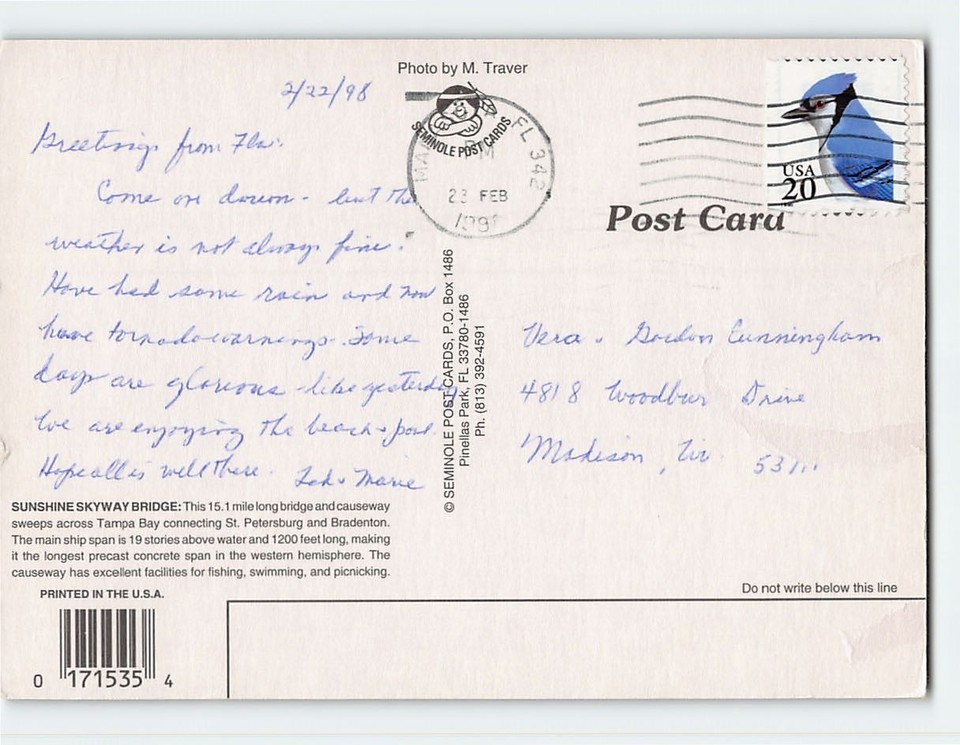 Photo by M. Traver
2/22/98
Greetings from Fla.
Come on down - but the
weather is not always fine.
Have had some rain and now
have tornado warnings. Some
days are glorious - like yesterday.
We are enjoying the beach + pool.
Hope all is well there.
Marie
SEMINOLE POST CARDS
FL 342
PM
23 FEB
USA
20
Post Card
© SEMINOLE POST CARDS, P.O. Box 1486
Pinellas Park, FL 33780-1486
Ph. (813) 392-4591
Vera + Gordon Cunningham
4818 Woodbur Drive
Madison, Wi. 53711
SUNSHINE SKYWAY BRIDGE: This 15.1 mile long bridge and causeway
sweeps across Tampa Bay connecting St. Petersburg and Bradenton.
The main ship span is 19 stories above water and 1200 feet long, making
it the longest precast concrete span in the western hemisphere. The
causeway has excellent facilities for fishing, swimming, and picnicking.
PRINTED IN THE U.S.A.
0 171535 4
Do not write below this line